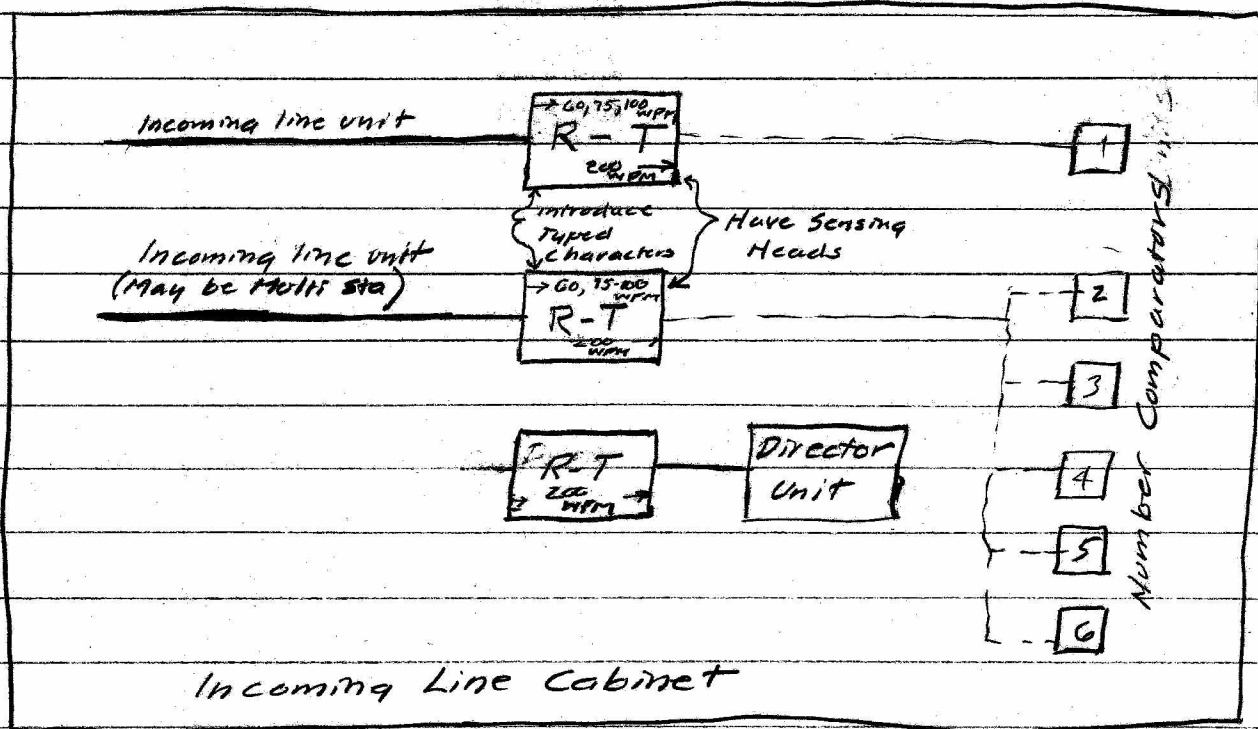 Incoming line unit
→ 60, 75, 100
WPM
R - T
200 →
WPM
1
introduce
typed
characters
Have Sensing
Heads
Incoming line unit
(May be Multi Sta)
→ 60, 75-100
WPM
R-T
200
WPM
2
3
R-T
200 →
WPM
Director
Unit
4
5
6
Number Comparators
Incoming Line Cabinet